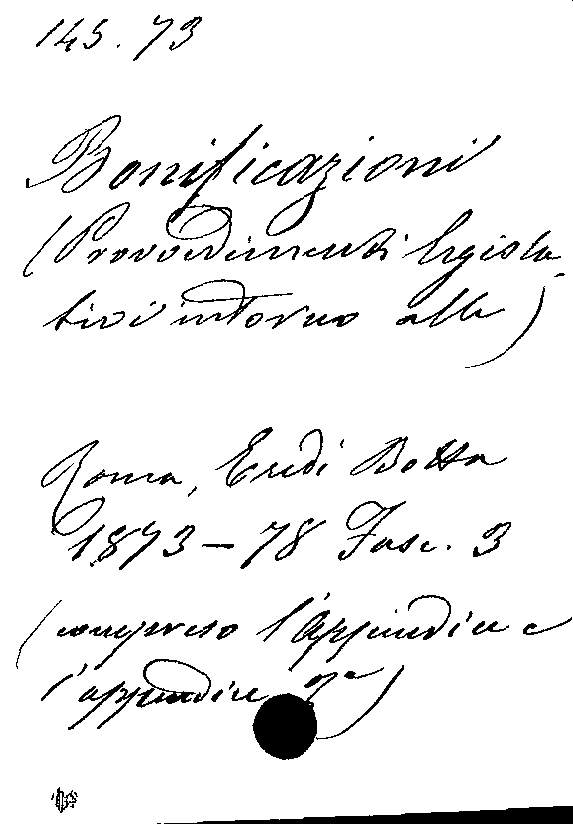 145. 73
Bonificazioni
(Provvedimenti legisla-
tivi intorno alle)
Roma, Eredi Botta
1873-78 Fasc. 3
(compreso l'Appendice e
l'appendice 2a)